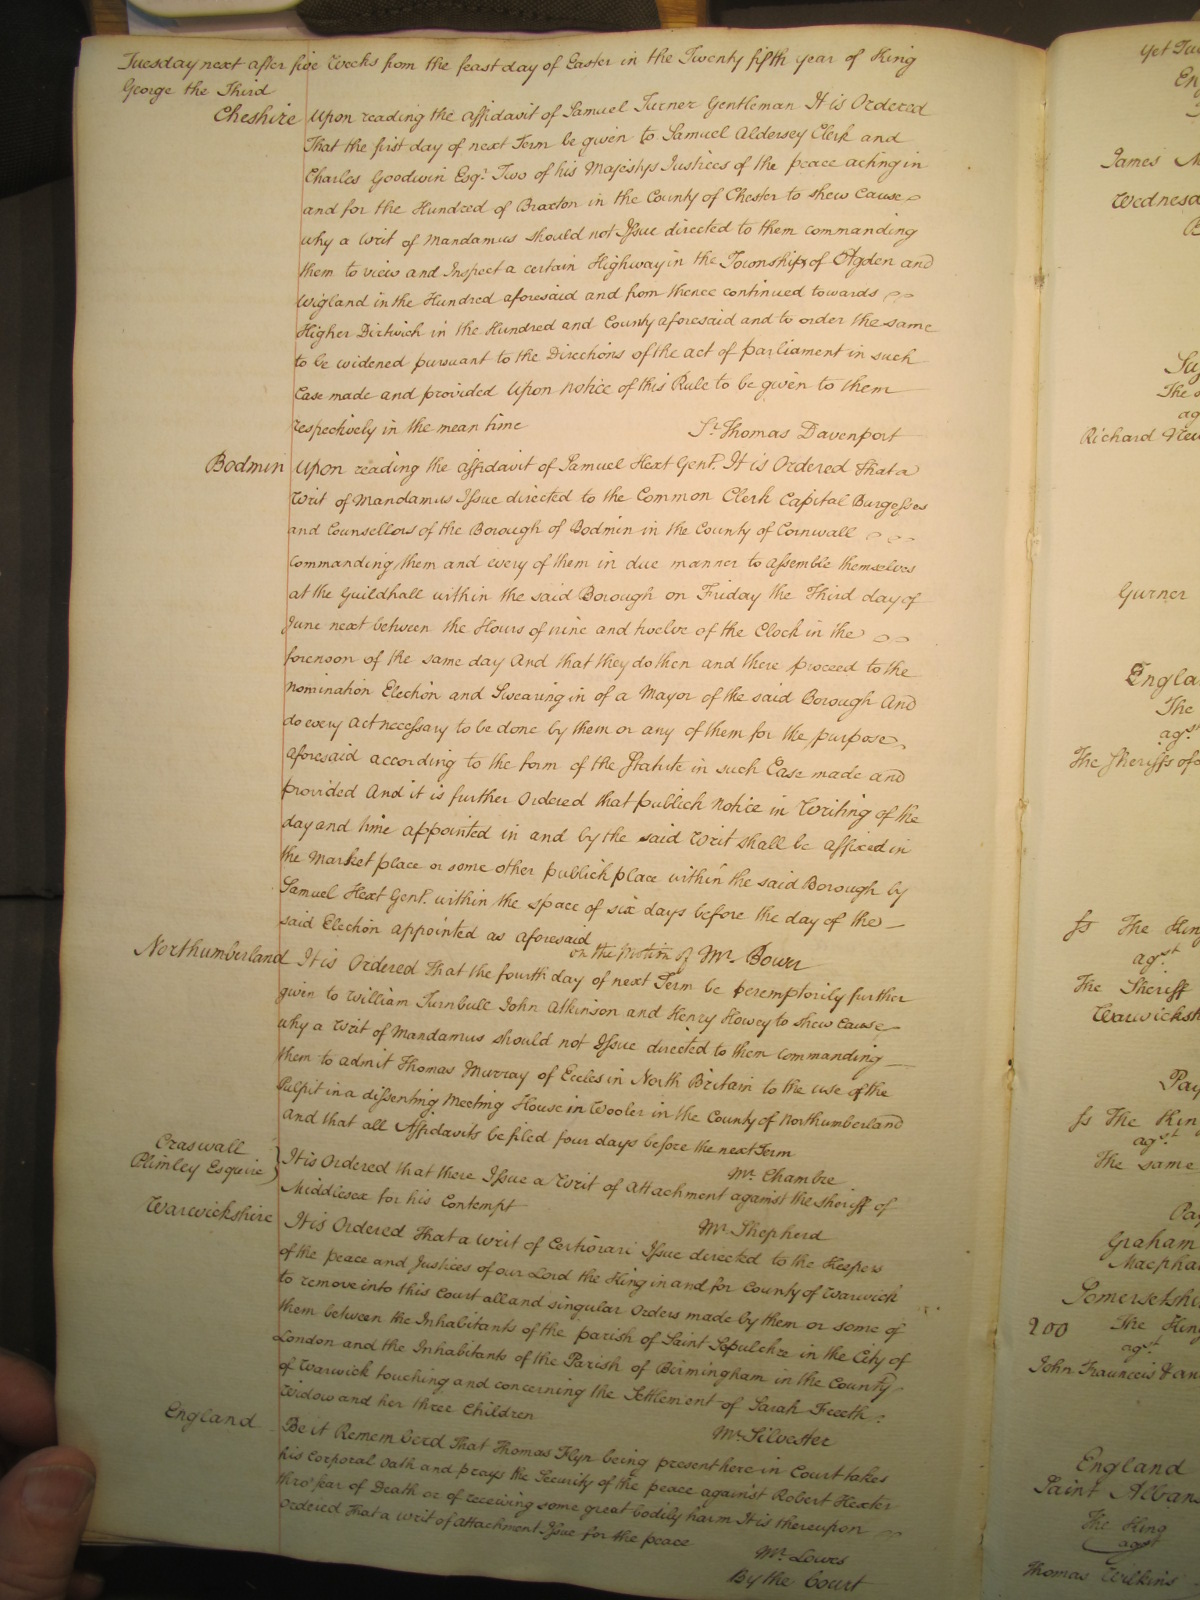 Tuesday next after five Weeks from the feast day of Easter in the Twenty fifth year of King
George the Third
Cheshire Upon reading the affidavit of Samuel Turner Gentleman It is Ordered
That the first day of next Term be given to Samuel Aldersey Clerk and
Charles Goodwin Esqr. Two of his Majestys Justices of the peace acting in
and for the Hundred of Broxton in the County of Chester to shew Cause
why a Writ of Mandamus should not Issue directed to them commanding
them to view and Inspect a certain Highway in the Townships of Agden and
Wigland in the Hundred aforesaid and from thence continued towards
Higher Dirtwich in the Hundred and County aforesaid and to order the same
to be widened pursuant to the Directions of the act of parliament in such
Case made and provided Upon notice of this Rule to be given to them
respectively in the mean time
Sr. Thomas Davenport
Bodmin Upon reading the affidavit of Samuel Hext Gent. It is Ordered That a
Writ of Mandamus Issue directed to the Common Clerk Capital Burgesses
and Counsellors of the Borough of Bodmin in the County of Cornwall
Commanding them and every of them in due manner to assemble themselves
at the Guildhall within the said Borough on Friday the Third day of
June next between the Hours of nine and twelve of the Clock in the
forenoon of the same day And that they do then and there proceed to the
nomination Election and Swearing in of a Mayor of the said Borough And
do every act necessary to be done by them or any of them for the purpose
aforesaid according to the form of the Statute in such Case made and
provided And it is further Ordered that publick notice in Writing of the
day and time appointed in and by the said Writ shall be affixed in
the Market place or some other publick place within the said Borough by
Samuel Hext Gent. within the space of six days before the day of the
said Election appointed as aforesaid
on the Motion of Mr. Bower
Northumberland It is Ordered That the fourth day of next Term be peremptorily further
given to William Turnbull John Atkinson and Henry Howey to shew cause
why a Writ of Mandamus should not Issue directed to them Commanding
them to admit Thomas Murray of Eccles in North Britain to the use of the
Pulpit in a dissenting Meeting House in Wooler in the County of Northumberland
and that all Affidavits be filed four days before the next Term
Mr. Chambre
Craswall
Plimley Esquire
It is Ordered that there Issue a Writ of Attachment against the Sheriff of
Middlesex for his Contempt
Mr. Shepherd
Warwickshire It is Ordered That a Writ of Certiorari Issue directed to the Keepers
of the peace and Justices of our Lord the King in and for County of Warwick
to remove into this Court all and singular Orders made by them or some of
them between the Inhabitants of the parish of Saint Sepulchre in the City of
London and the Inhabitants of the Parish of Birmingham in the County
of Warwick touching and concerning the Settlement of Sarah Freeth
Widow and her three Children
Mr. Silvester
England Be it Rememberd That Thomas Flyn being present here in Court takes
his Corporal Oath and prays the Security of the peace against Robert Hexter
thro' fear of Death or of receiving some great bodily harm It is thereupon
Ordered That a writ of attachment Issue for the peace
Mr. Lowes
By the Court
James
Richard
Gurner
The
agst.
The Sheriffs of
The
agst.
The Sheriff
The
agst.
The same
Graham
200
agst.
England
Saint
The King
agst
Thomas Wilkins